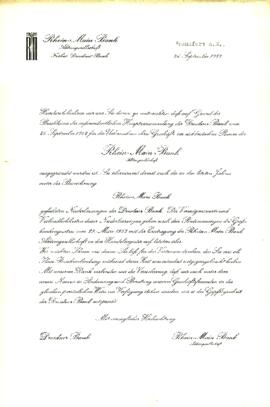 Rhein-Main Bank
Aktiengesellschaft
früher Dresdner Bank
Frankfurt a.M.,
26. September 1952
Hierdurch beehren wir uns Sie davon zu unterrichten, daß auf Grund der
Beschlüsse der außerordentlichen Hauptversammlung der Dresdner Bank vom
25. September 1952 für die Übernahme des Geschäfts im
Rhein-Main Bank
Aktiengesellschaft
ausgegründet worden ist. Sie übernimmt damit auch die in den letzten Jahren
unter der Bezeichnung
Rhein-Main Bank
geführten Niederlassungen der Dresdner Bank. Die Vermögenswerte und
Verbindlichkeiten dieser Niederlassungen gehen nach den Bestimmungen des Groß-
bankengesetzes vom 29. März 1952 mit der Eintragung der Rhein-Main Bank
Aktiengesellschaft in das Handelsregister auf letztere über.
Wir möchten Ihnen von dieser Stelle für das Vertrauen danken, das Sie uns als
Ihrer Bankverbindung während dieser Zeit entgegengebracht haben.
Mit unserem Dank verbinden wir die Versicherung, daß wir auch unter dem
neuen Namen in Bedienung und Beratung unserer Geschäftsfreunde in der
gleichen Weise zur Verfügung stehen werden, wie es den Gepflogenheiten
der Dresdner Bank entspricht.
Mit vorzüglicher Hochachtung
Dresdner Bank
Rhein-Main Bank
Aktiengesellschaft